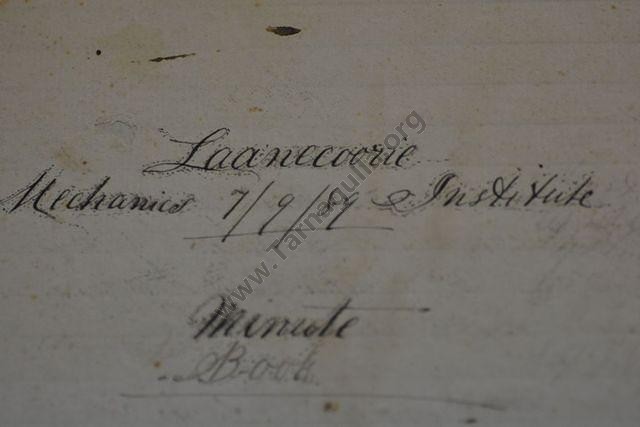 Laanecoorie
Mechanics 7/9/89 Institute
Minute
Book
www.Tarnagulla.org